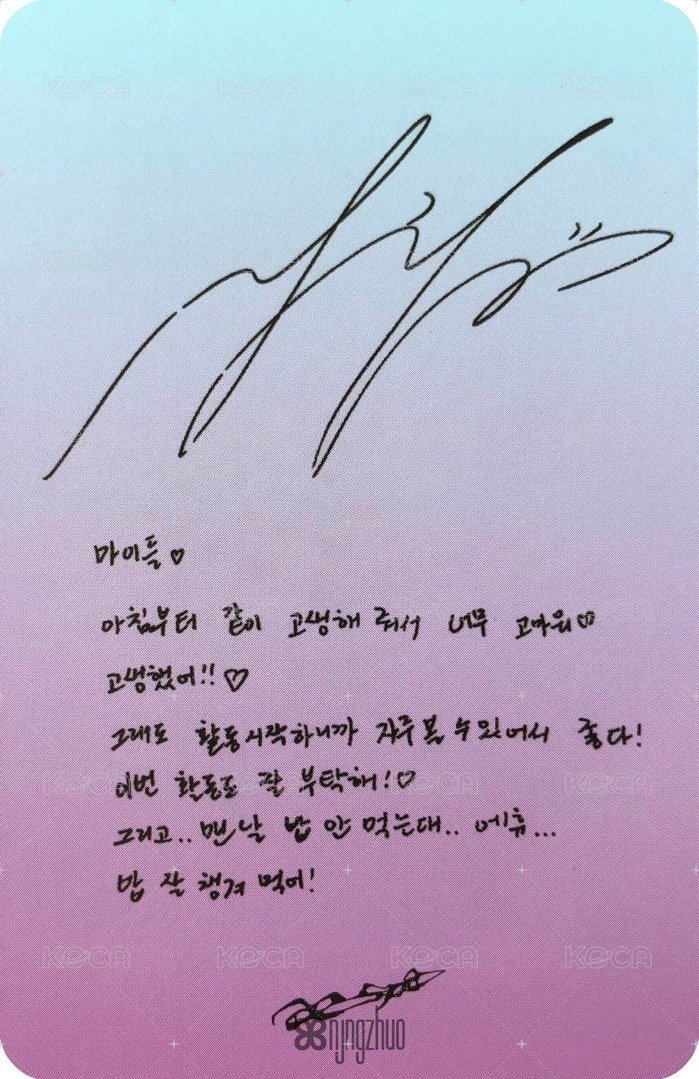 KOCA KOCA KOCA KOCA
마이들♡
아침부터 같이 고생해 줘서 너무 고마워♡
고생했어!! ♡
그래도 활동시작하니까 자주 볼 수 있어서 좋다!
이번 활동도 잘 부탁해!♡
그리고.. 맨날 밥 안 먹는대.. 에휴...
밥 잘 챙겨 먹어!
KOCA KOCA KOCA KOCA
aespa
njngzhuo